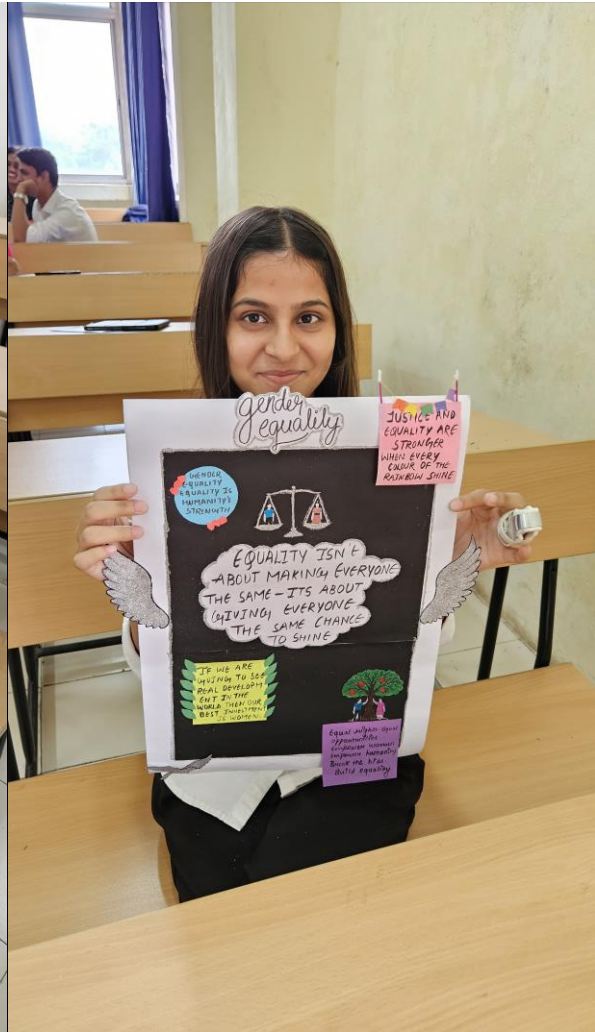 gender
equality
JUSTICE AND
EQUALITY ARE
STRONGER
WHEN EVERY
COLOUR OF THE
RAINBOW SHINE
GENDER
EQUALITY
EQUALITY IS
HUMANITY'S
STRENGTH
EQUALITY ISN'T
ABOUT MAKING EVERYONE
THE SAME - ITS ABOUT
GIVING EVERYONE
THE SAME CHANCE
TO SHINE
IF WE ARE
GOING TO SEE
REAL DEVELOPM
ENT IN THE
WORLD THEN OUR
BEST INVESTMENT
IS WOMEN.
Equal rights equal
opportunities
empower women
empower humanity
Break the bias
Build equality